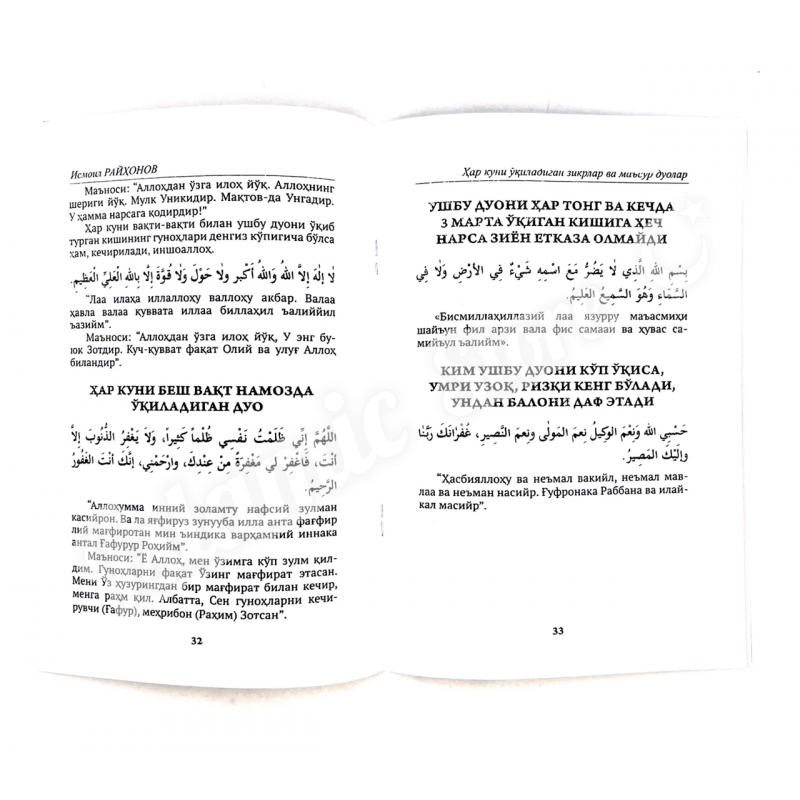 Исмоил РАЙҲОНОВ
Маъноси: “Аллоҳдан ўзга илоҳ йўқ. Аллоҳнинг
шериги йўқ. Мулк Уникидир. Мақтов-да Унгадир.
У ҳамма нарсага қодирдир!”
Ҳар куни вақти-вақти билан ушбу дуони ўқиб
турган кишининг гуноҳлари денгиз кўпигича бўлса
ҳам, кечирилади, иншоаллоҳ.
لَا إِلَهَ إِلَّا اللهُ وَاللهُ أَكْبَر وَلَا حَوْلَ وَلَا قُوَّةَ إِلَّا بِاللهِ الْعَلِيِّ الْعَظِيمِ.
“Лаа илаҳа иллаллоҳу валлоҳу акбар. Валаа
ҳавла валаа қуввата иллаа биллаҳил ъалиййил
ъазийм”.
Маъноси: “Аллоҳдан ўзга илоҳ йўқ, У энг бу-
юк Зотдир. Куч-қувват фақат Олий ва улуғ Аллоҳ
биландир”.
ҲАР КУНИ БЕШ ВАҚТ НАМОЗДА
ЎҚИЛАДИГАН ДУО
اللَّهُمَّ إِنِّي ظَلَمْتُ نَفْسِي ظُلْماً كَثِيراً، وَلَا يَغْفِرُ الذُّنُوبَ إِلَّا
أَنْتَ، فَاغْفِرْ لِي مَغْفِرَةً مِنْ عِنْدِكَ، وَارْحَمْنِي، إِنَّكَ أَنْتَ الْغَفُورُ
الرَّحِيمُ.
“Аллоҳумма инний золамту нафсий зулман
касийрон. Ва ла яғфируз зунууба илла анта фағфир
лий мағфиротан мин ъиндика варҳамний иннака
антал Ғафурур Роҳийм”.
Маъноси: “Ё Аллоҳ, мен ўзимга кўп зулм қил-
дим. Гуноҳларни фақат Ўзинг мағфират этасан.
Мени Ўз ҳузурингдан бир мағфират билан кечир,
менга раҳм қил. Албатта, Сен гуноҳларни кечи-
рувчи (Ғафур), меҳрибон (Раҳим) Зотсан”.
32
Ҳар куни ўқиладиган зикрлар ва маъсур дуолар
УШБУ ДУОНИ ҲАР ТОНГ ВА КЕЧДА
3 МАРТА ЎҚИГАН КИШИГА ҲЕЧ
НАРСА ЗИЁН ЕТКАЗА ОЛМАЙДИ
بِسْمِ اللهِ الَّذِي لَا يَضُرُّ مَعَ اسْمِهِ شَيْءٌ فِي الأَرْضِ وَلَا فِي
السَّمَاءِ وَهُوَ السَّمِيعُ العَلِيمُ.
«Бисмиллаҳиллазий лаа язурру маъасмиҳи
шайъун фил арзи вала фис самааи ва ҳувас са-
мийъул ъалийм».
КИМ УШБУ ДУОНИ КЎП ЎҚИСА,
УМРИ УЗОҚ, РИЗҚИ КЕНГ БЎЛАДИ,
УНДАН БАЛОНИ ДАФ ЭТАДИ
حَسْبِيَ الله وَنِعْمَ الْوَكِيلُ نِعمَ المَولَى ونِعمَ النَّصِير، غُفْرَانَكَ رَبَّنَا
وَإِلَيْكَ الْمَصِيرُ.
“Ҳасбияллоҳу ва неъмал вакийл, неъмал мав-
лаа ва неъман насийр. Ғуфронака Раббана ва илай-
кал масийр”.
33